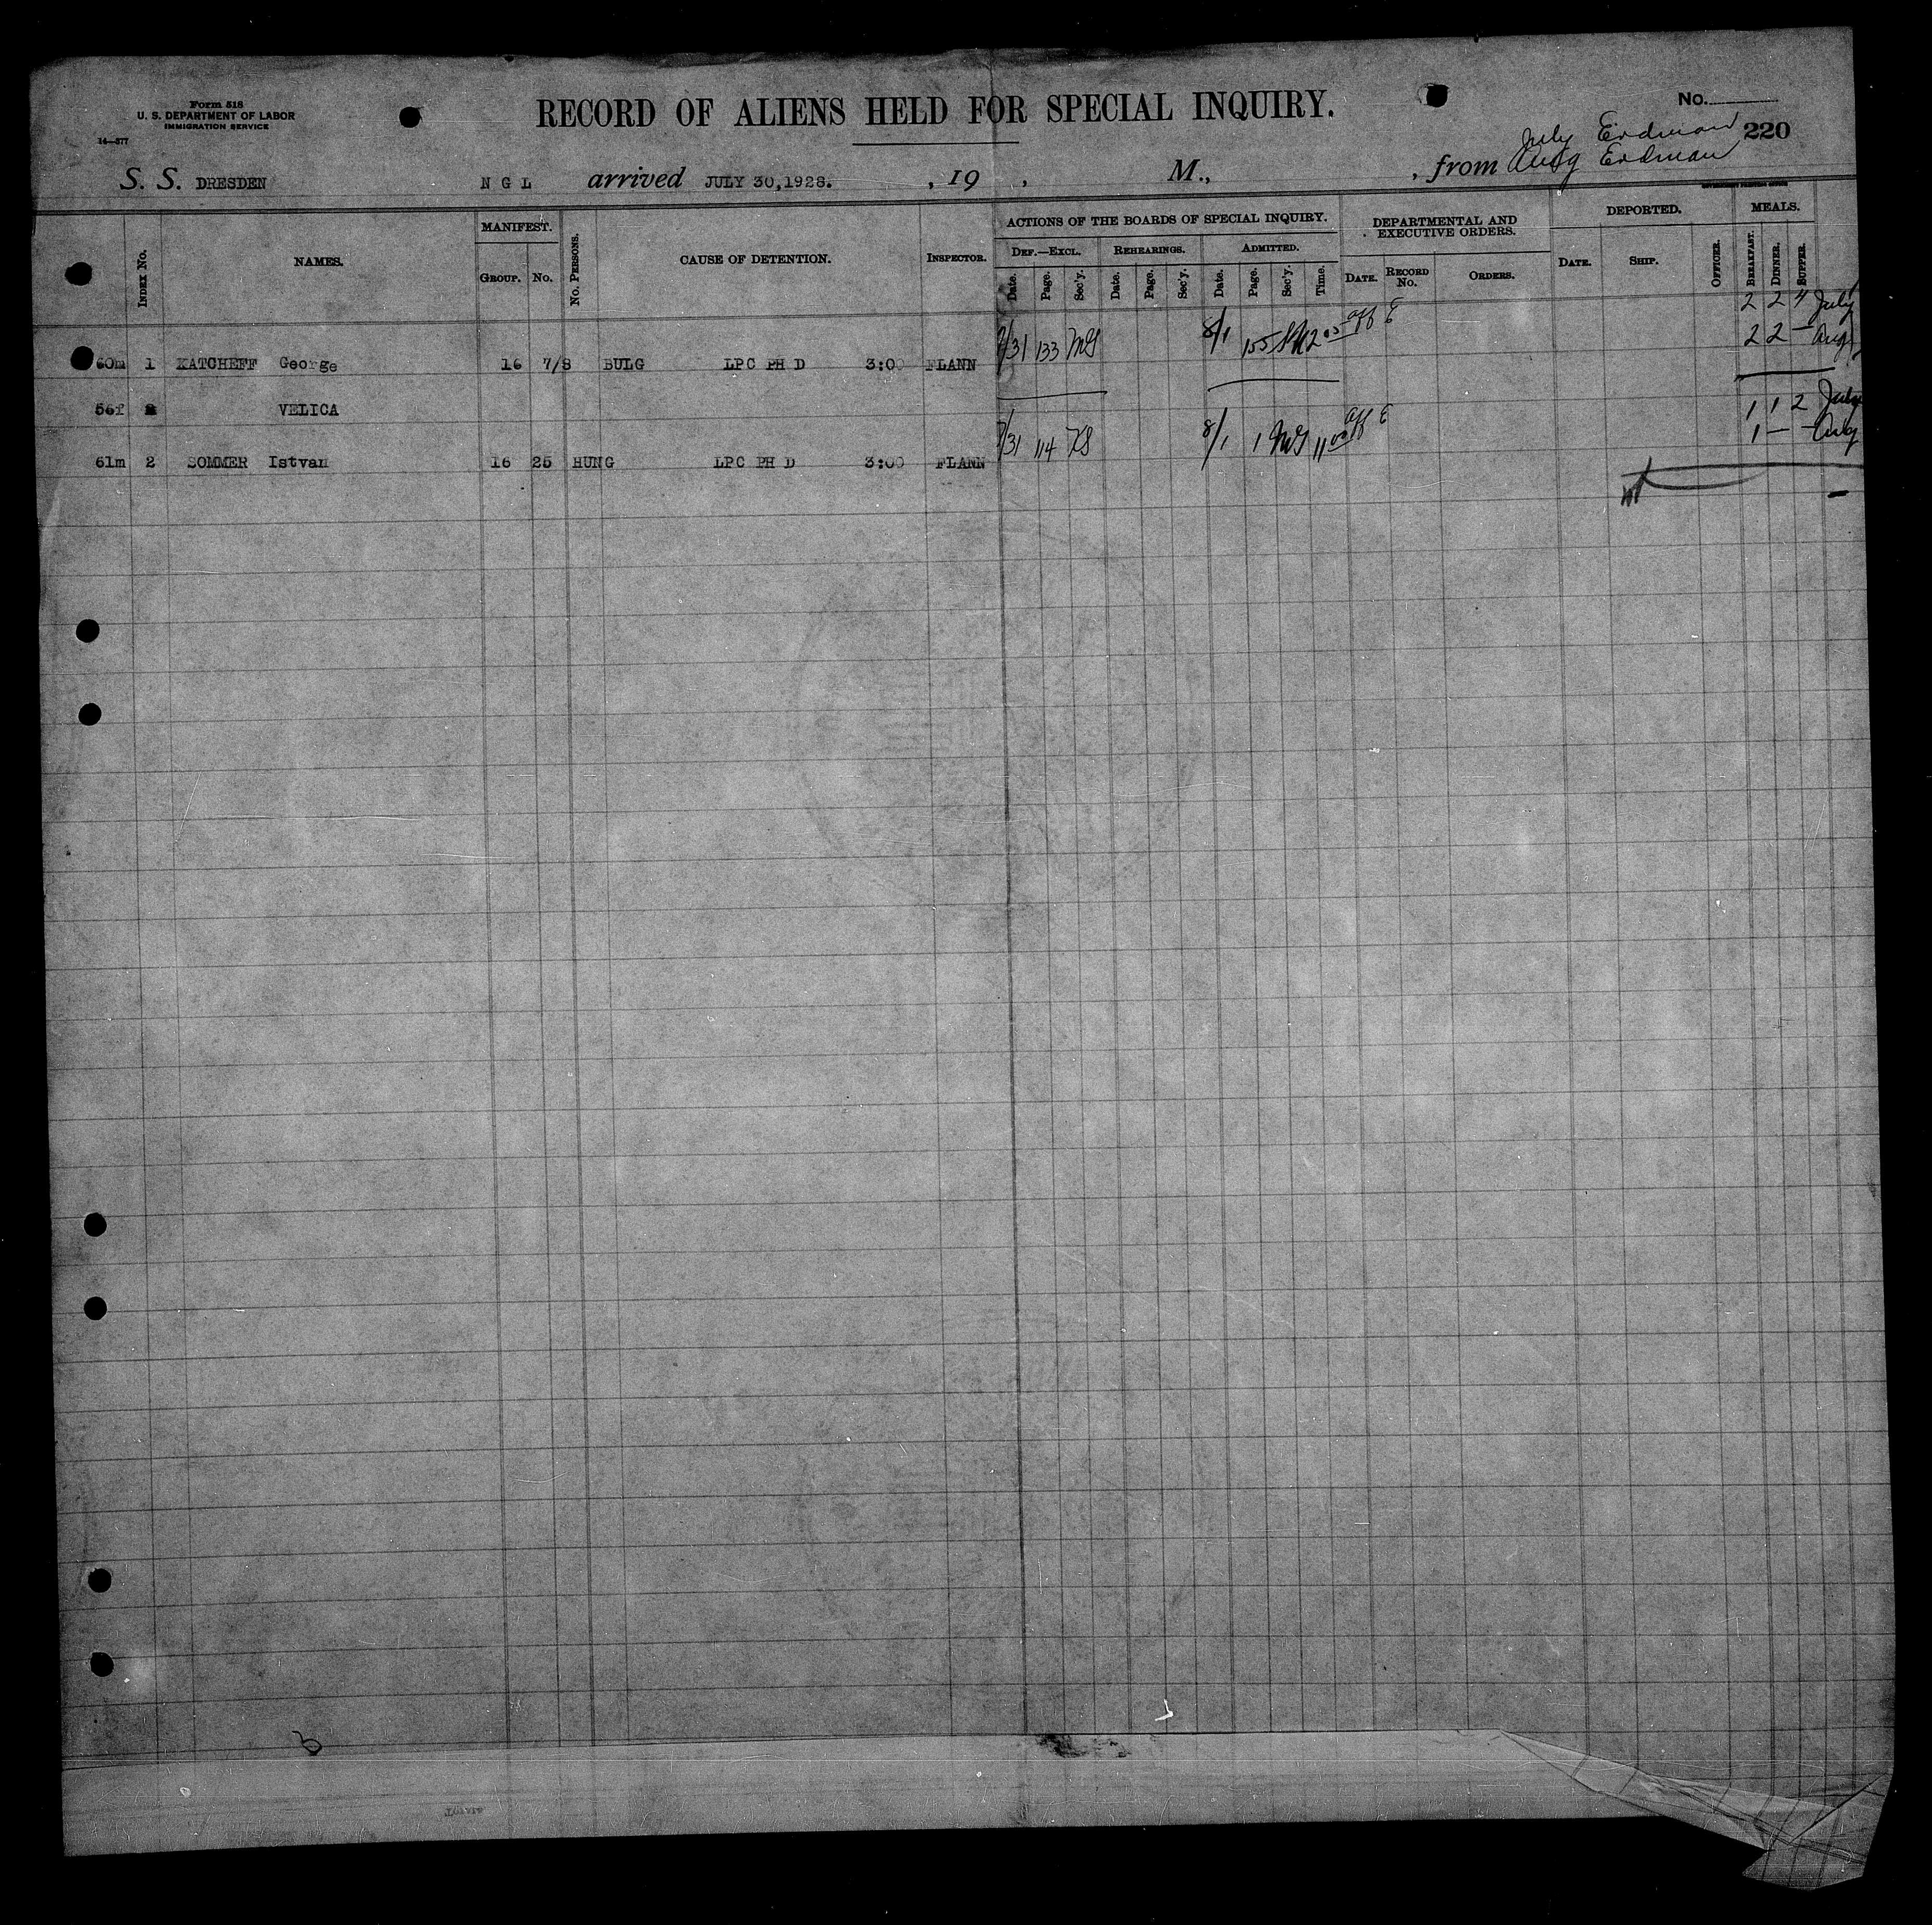 Form 518
U. S. DEPARTMENT OF LABOR
IMMIGRATION SERVICE
14—377
RECORD OF ALIENS HELD FOR SPECIAL INQUIRY.
No.
220
July Erdman
Aug Erdman
S. S. DRESDEN N G L arrived JULY 30,1928. , 19 , M., , from
GOVERNMENT PRINTING OFFICE
INDEX No. NAMES. MANIFEST. GROUP. No. No. PERSONS. CAUSE OF DETENTION. INSPECTOR.
ACTIONS OF THE BOARDS OF SPECIAL INQUIRY.
DEF.—EXCL. Date. Page. Sec'y. REHEARINGS. Date. Page. Sec'y. ADMITTED. Date. Page. Sec'y. Time.
DEPARTMENTAL AND EXECUTIVE ORDERS. DATE. RECORD No. ORDERS.
DEPORTED. DATE. SHIP. OFFICER.
MEALS. BREAKFAST. DINNER. SUPPER.
2 2 4 July
2 2 — Aug
60m 1 KATCHEFF George 16 7/8 BULG LPC PH D 3:00 FLANN 7/31 133 MG 8/1 155
56f VELICA
1 1 2 July
1 — — Aug
61m 2 SOMMER Istvan 16 25 HUNG LPC PH D 3:00 FLANN 7/31 114 KS 8/1 1 MG 11 00